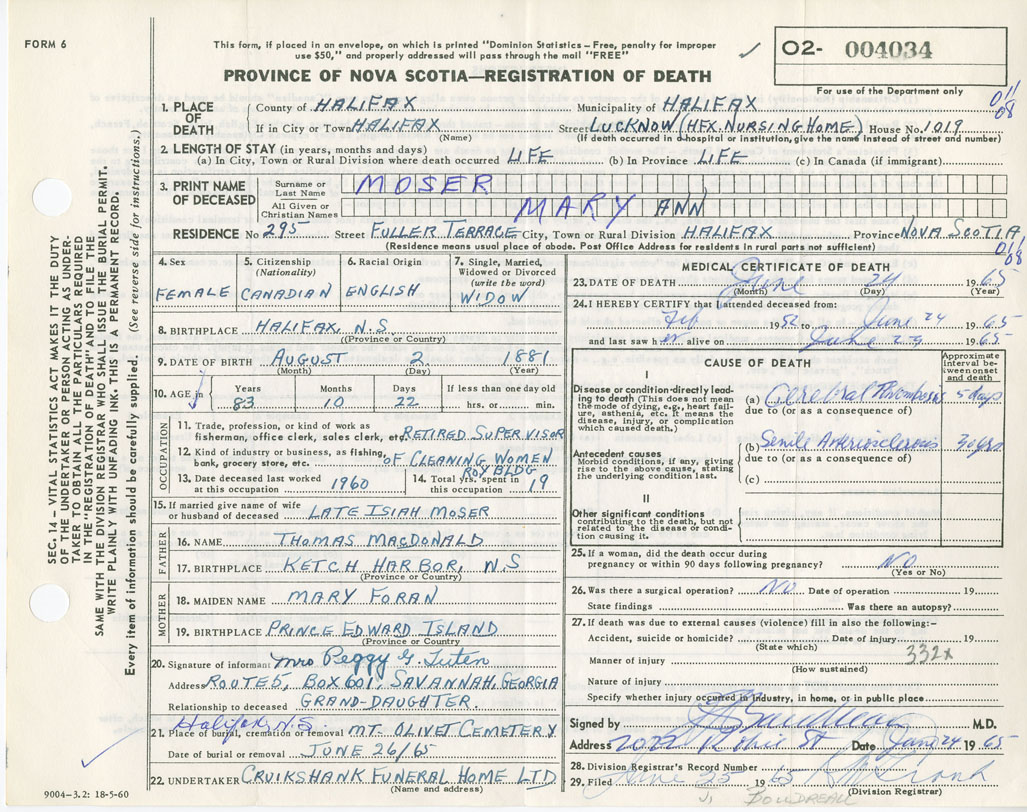 FORM 6
This form, if placed in an envelope, on which is printed "Dominion Statistics – Free, penalty for improper
use $50," and properly addressed will pass through the mail "FREE"
PROVINCE OF NOVA SCOTIA—REGISTRATION OF DEATH
02- 004034
For use of the Department only
011
08
1. PLACE OF DEATH
County of HALIFAX Municipality of HALIFAX
If in City or Town HALIFAX Street LUCKNOW (HFX. NURSING HOME) House No. 1019
(Name) (If death occurred in a hospital or institution, give the name instead of street and number)
2. LENGTH OF STAY (in years, months and days)
(a) In City, Town or Rural Division where death occurred LIFE (b) In Province LIFE (c) In Canada (if immigrant)
3. PRINT NAME OF DECEASED
Surname or Last Name MOSER
All Given or Christian Names MARY ANN
RESIDENCE No 295 Street FULLER TERRACE City, Town or Rural Division HALIFAX Province NOVA SCOTIA
(Residence means usual place of abode. Post Office Address for residents in rural parts not sufficient)
011
08
4. Sex
FEMALE
5. Citizenship (Nationality)
CANADIAN
6. Racial Origin
ENGLISH
7. Single, Married, Widowed or Divorced (write the word)
WIDOW
8. BIRTHPLACE HALIFAX, N.S.
(Province or Country)
9. DATE OF BIRTH AUGUST 2 1881
(Month) (Day) (Year)
10. AGE in
Years Months Days If less than one day old
83 10 22 hrs. or min.
OCCUPATION
11. Trade, profession, or kind of work as
fisherman, office clerk, sales clerk, etc. RETIRED SUPERVISOR
12. Kind of industry or business, as fishing,
bank, grocery store, etc. OF CLEANING WOMEN
ROY BLDG
13. Date deceased last worked at this occupation 1960
14. Total yrs. spent in this occupation 19
15. If married give name of wife
or husband of deceased LATE ISIAH MOSER
FATHER
16. NAME THOMAS MACDONALD
17. BIRTHPLACE KETCH HARBOR, N.S
(Province or Country)
MOTHER
18. MAIDEN NAME MARY FORAN
19. BIRTHPLACE PRINCE EDWARD ISLAND
(Province or Country)
20. Signature of informant Mrs Peggy G. Tuten
Address ROUTE 5, BOX 601, SAVANNAH, GEORGIA
Relationship to deceased GRAND-DAUGHTER.
Halifax N.S.
21. Place of burial, cremation or removal MT. OLIVET CEMETERY
Date of burial or removal JUNE 26/65
22. UNDERTAKER CRUIKSHANK FUNERAL HOME LTD
(Name and address)
MEDICAL CERTIFICATE OF DEATH
23. DATE OF DEATH June 24 1965
(Month) (Day) (Year)
24. I HEREBY CERTIFY that I attended deceased from:
Feb 1952 to June 24 1965
and last saw her alive on June 23 1965
CAUSE OF DEATH
Approximate interval between onset and death
I
Disease or condition directly leading to death (This does not mean the mode of dying, e.g., heart failure, asthenia, etc. It means the disease, injury, or complication which caused death.)
(a) Cerebral Thrombosis 5 days
due to (or as a consequence of)
Antecedent causes
Morbid conditions, if any, giving rise to the above cause, stating the underlying condition last.
(b) Senile Arteriosclerosis 30 yrs
due to (or as a consequence of)
(c)
II
Other significant conditions
contributing to the death, but not related to the disease or condition causing it.
25. If a woman, did the death occur during
pregnancy or within 90 days following pregnancy? NO
(Yes or No)
26. Was there a surgical operation? NO Date of operation 19
State findings Was there an autopsy?
27. If death was due to external causes (violence) fill in also the following:–
Accident, suicide or homicide? Date of injury 19
(State which)
332x
Manner of injury
(How sustained)
Nature of injury
Specify whether injury occurred in industry, in home, or in public place
Signed by M.D.
Address St Date June 24 1965
28. Division Registrar's Record Number
29. Filed June 25 1965
(Division Registrar)
J. BOUDREAU
SEC. 14 – VITAL STATISTICS ACT MAKES IT THE DUTY
OF THE UNDERTAKER OR PERSON ACTING AS UNDER-
TAKER TO OBTAIN ALL THE PARTICULARS REQUIRED
IN THE "REGISTRATION OF DEATH" AND TO FILE THE
SAME WITH THE DIVISION REGISTRAR WHO SHALL ISSUE THE BURIAL PERMIT.
WRITE PLAINLY WITH UNFADING INK. THIS IS A PERMANENT RECORD.
Every item of information should be carefully supplied. (See reverse side for instructions.)
9004–3.2: 18-5-60